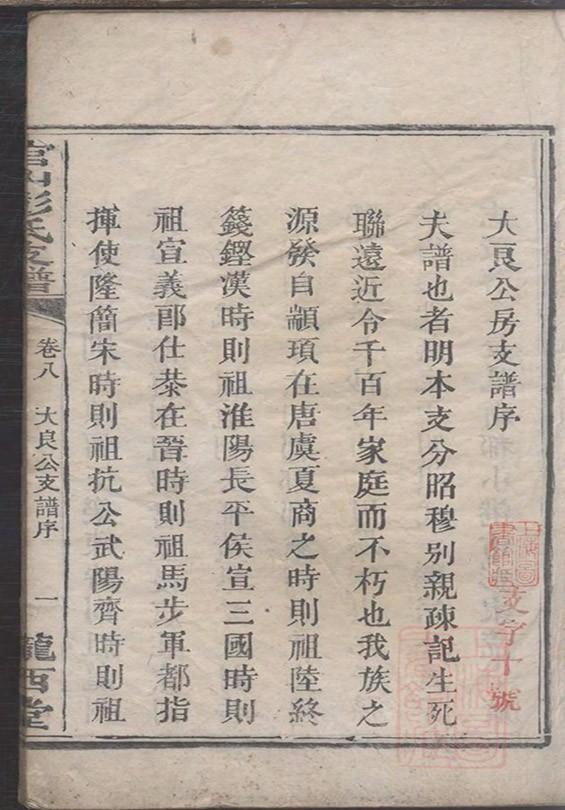 大良公房支譜序
支字十號
夫譜也者明本支分昭穆別親疎記生死
聯遠近令千百年家庭而不朽也我族之
源發自顓頊在唐虞夏商之時則祖陸終
籛鏗漢時則祖淮陽長平侯宣三國時則
祖宣義郎仕㳟在晉時則祖馬步軍都指
揮使隆簡宋時則祖抗公武陽齊時則祖
官山彭氏支譜
卷八
大良公支譜序
一
隴西堂